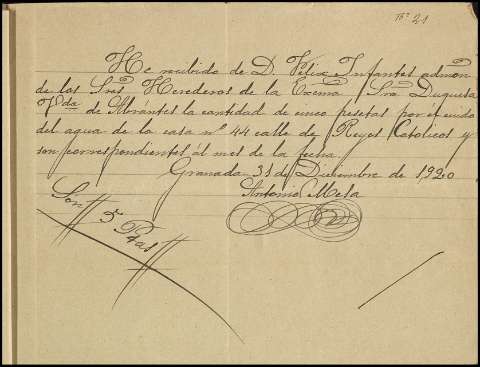 Nº 21
He recibido de D. Félix Infantes admón
de los Sres Herederos de la Excma Sra Duquesa
Vda de Abrántes la cantidad de cinco pesetas por el cuido
del agua de la casa nº 44 calle de Reyes Católicos y
son correspondientes al mes de la fecha
Granada 31 de Diciembre de 1,920
Antonio Mesa
Son # 5 Ptas #